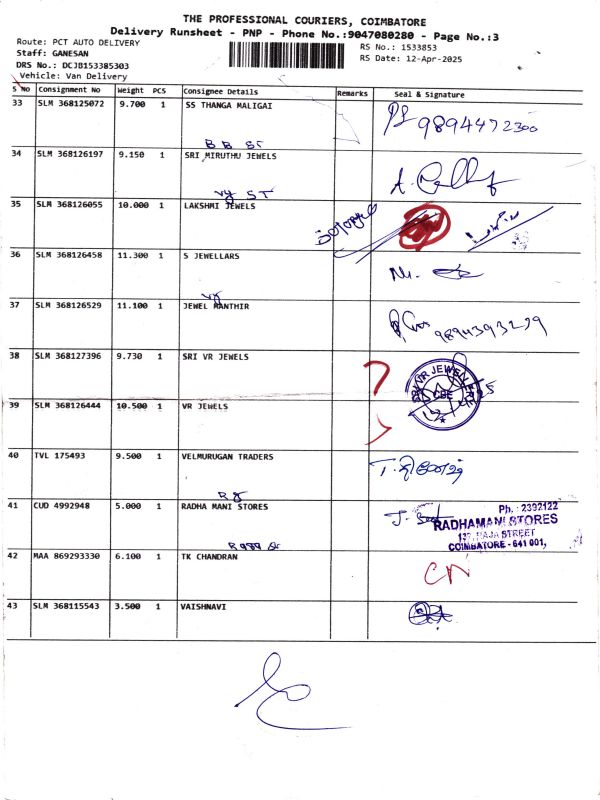 THE PROFESSIONAL COURIERS, COIMBATORE
Delivery Runsheet - PNP - Phone No.:9047080280 - Page No.:3
Route: PCT AUTO DELIVERY
Staff: GANESAN
DRS No.: DCJB153385303
Vehicle: Van Delivery
RS No.: 1533853
RS Date: 12-Apr-2025
S No Consignment No Weight PCS Consignee Details Remarks Seal & Signature
33 SLM 368125072 9.700 1 SS THANGA MALIGAI
9894472300
B B St
34 SLM 368126197 9.150 1 SRI MIRUTHU JEWELS
Vy ST
35 SLM 368126055 10.000 1 LAKSHMI JEWELS
36 SLM 368126458 11.300 1 S JEWELLARS
Vy
37 SLM 368126529 11.100 1 JEWEL MANTHIR
9894393279
38 SLM 368127396 9.730 1 SRI VR JEWELS
SRI VR JEWELLERY
CBE
39 SLM 368126444 10.500 1 VR JEWELS
40 TVL 175493 9.500 1 VELMURUGAN TRADERS
41 CUD 4992948 5.000 1 RADHA MANI STORES
Ph. : 2392122
RADHAMANI STORES
137, RAJA STREET
COIMBATORE - 641 001,
42 MAA 869293330 6.100 1 TK CHANDRAN
CN
43 SLM 368115543 3.500 1 VAISHNAVI